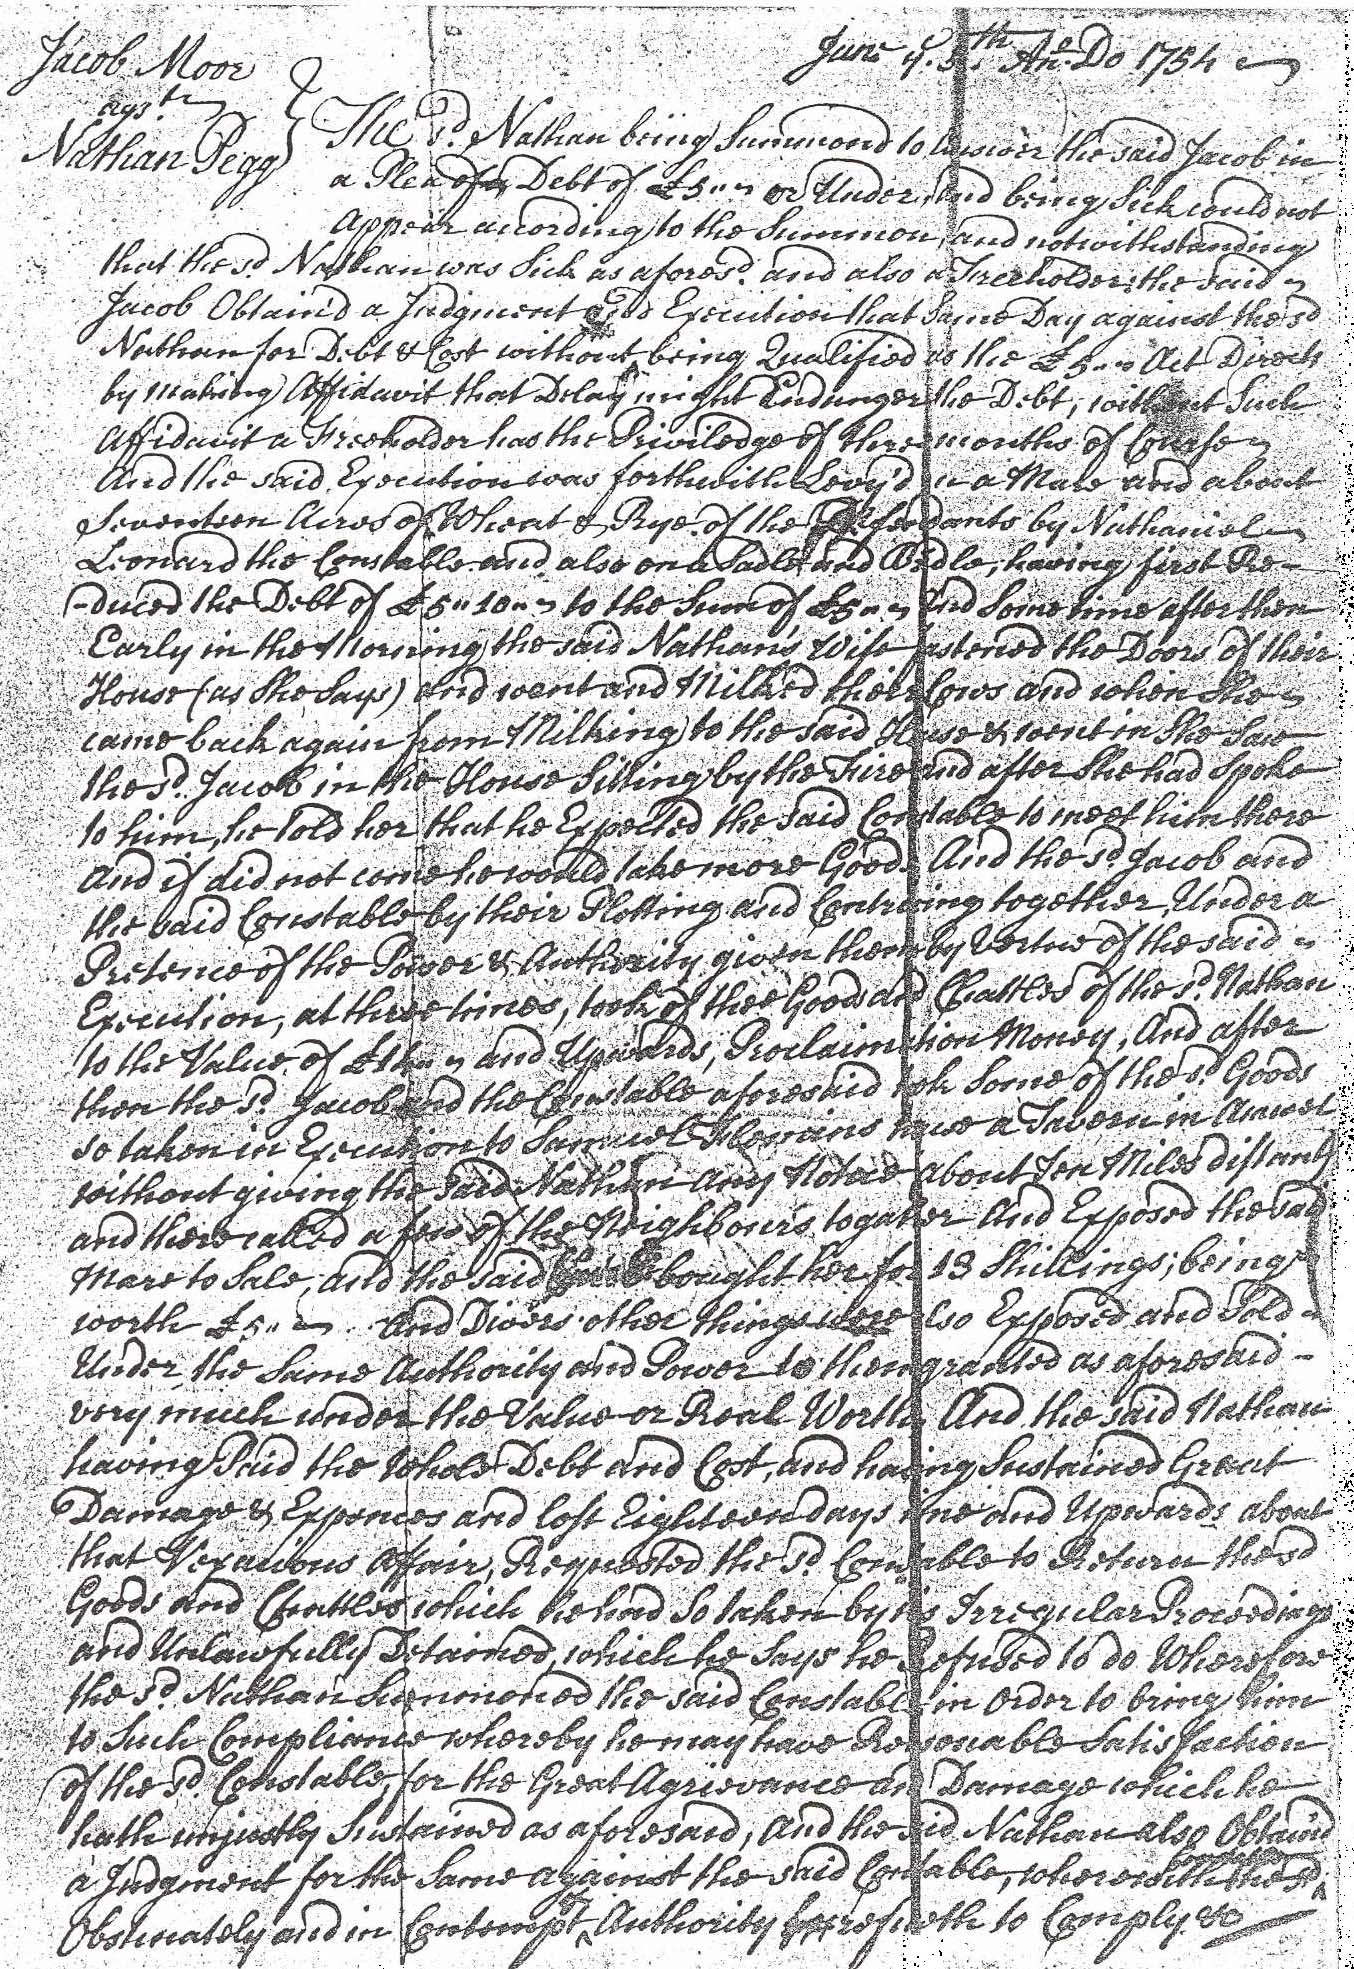 June ye 5th An:o Do 1754
Jacob Moor
agst
Nathan Pegg
The sd. Nathan being Summond to Answer the said Jacob in
a Plea of Debt of £5"" or Under, and being Sick could not
Appear according to the Summon, and notwithstanding
that the sd. Nathan was Sick as aforesd. and also a Freeholder, the said
Jacob Obtain'd a Judgment and Execution that Same Day against the sd
Nathan for Debt & Cost without being Qualified as the £5"" Act Directs
by making Affidavit that Delay might Endanger the Debt, without Such
Affidavit a Freeholder has the Priviledge of three months of Course
And the said Execution was forthwith Levy'd on a Mare and about
Seventeen Acres of Wheat & Rye of the Defendants by Nathaniel
Leonard the Constable and also on a Sadle and Bridle, having first Re-
-duced the Debt of £5"10"" to the Sum of £5"" And Some time after then
Early in the Morning the said Nathan's Wife fastened the Doors of their
House (as She Says) and went and Milked their Cows and when She
came back again from Milking to the said House & went in She Saw
the sd. Jacob in the House Sitting by the Fire and after She had Spoke
to him, he Told her that he Expected the said Constable to meet him there
And if did not come he would take more Goods And the sd. Jacob and
the said Constable by their Plotting and Contriving together, Under a
Pretence of the Power & Authority given them by Vertue of the said
Execution, at three times, took of thee Goods and Chattles of the sd. Nathan
to the Value of and Upwards, Proclaimation Money, And after
then the sd. Jacob and the Constable aforesaid took Some of the sd. Goods
so taken in Execution to Samuel Flemins a Tavern in Amwel
without giving the said Nathan any Notice about Ten Miles distant
and there called a few of the Neighbours togather And Exposed the said
Mare to Sale, and the said bought her for 13 Shillings; being
worth £5"" And Divers other things were also Exposed and Sold
Under the Same Authority and Power to them granted as aforesaid
very much under the Value or Real Worth, And the said Nathan
having Paid the whole Debt and Cost, and having Sustained Great
Damage & Expences and lost Eighteen days time and Upwards about
that Vexatious Affair, Requested the sd. Constable to Return the sd
Goods and Chattles which he had So taken by his Irregular Proceedings
and Unlawfully Detained, which he Says he Refused to do Wherefore
the sd Nathan Summoned the said Constable in order to bring him
to Such Compliance whereby he may have Reasonable Satisfaction
of the sd. Constable, for the Great Agrievance and Damage which he
hath unjustly Sustained as aforesaid, And the said Nathan also Obtain'd
a Judgment for the Same against the said Constable, wherewith the sd. Constable
Obstinately and in Contempt of Authority refuseth to Comply &c